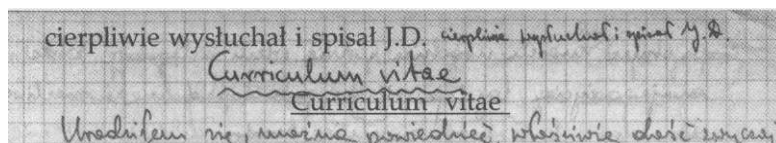 cierpliwie wysłuchał i spisał J.D. cierpliwie wysłuchał i spisał J.D.
Curriculum vitae
Curriculum vitae
Urodziłem się, można powiedzieć, właściwie dość zwyczaj